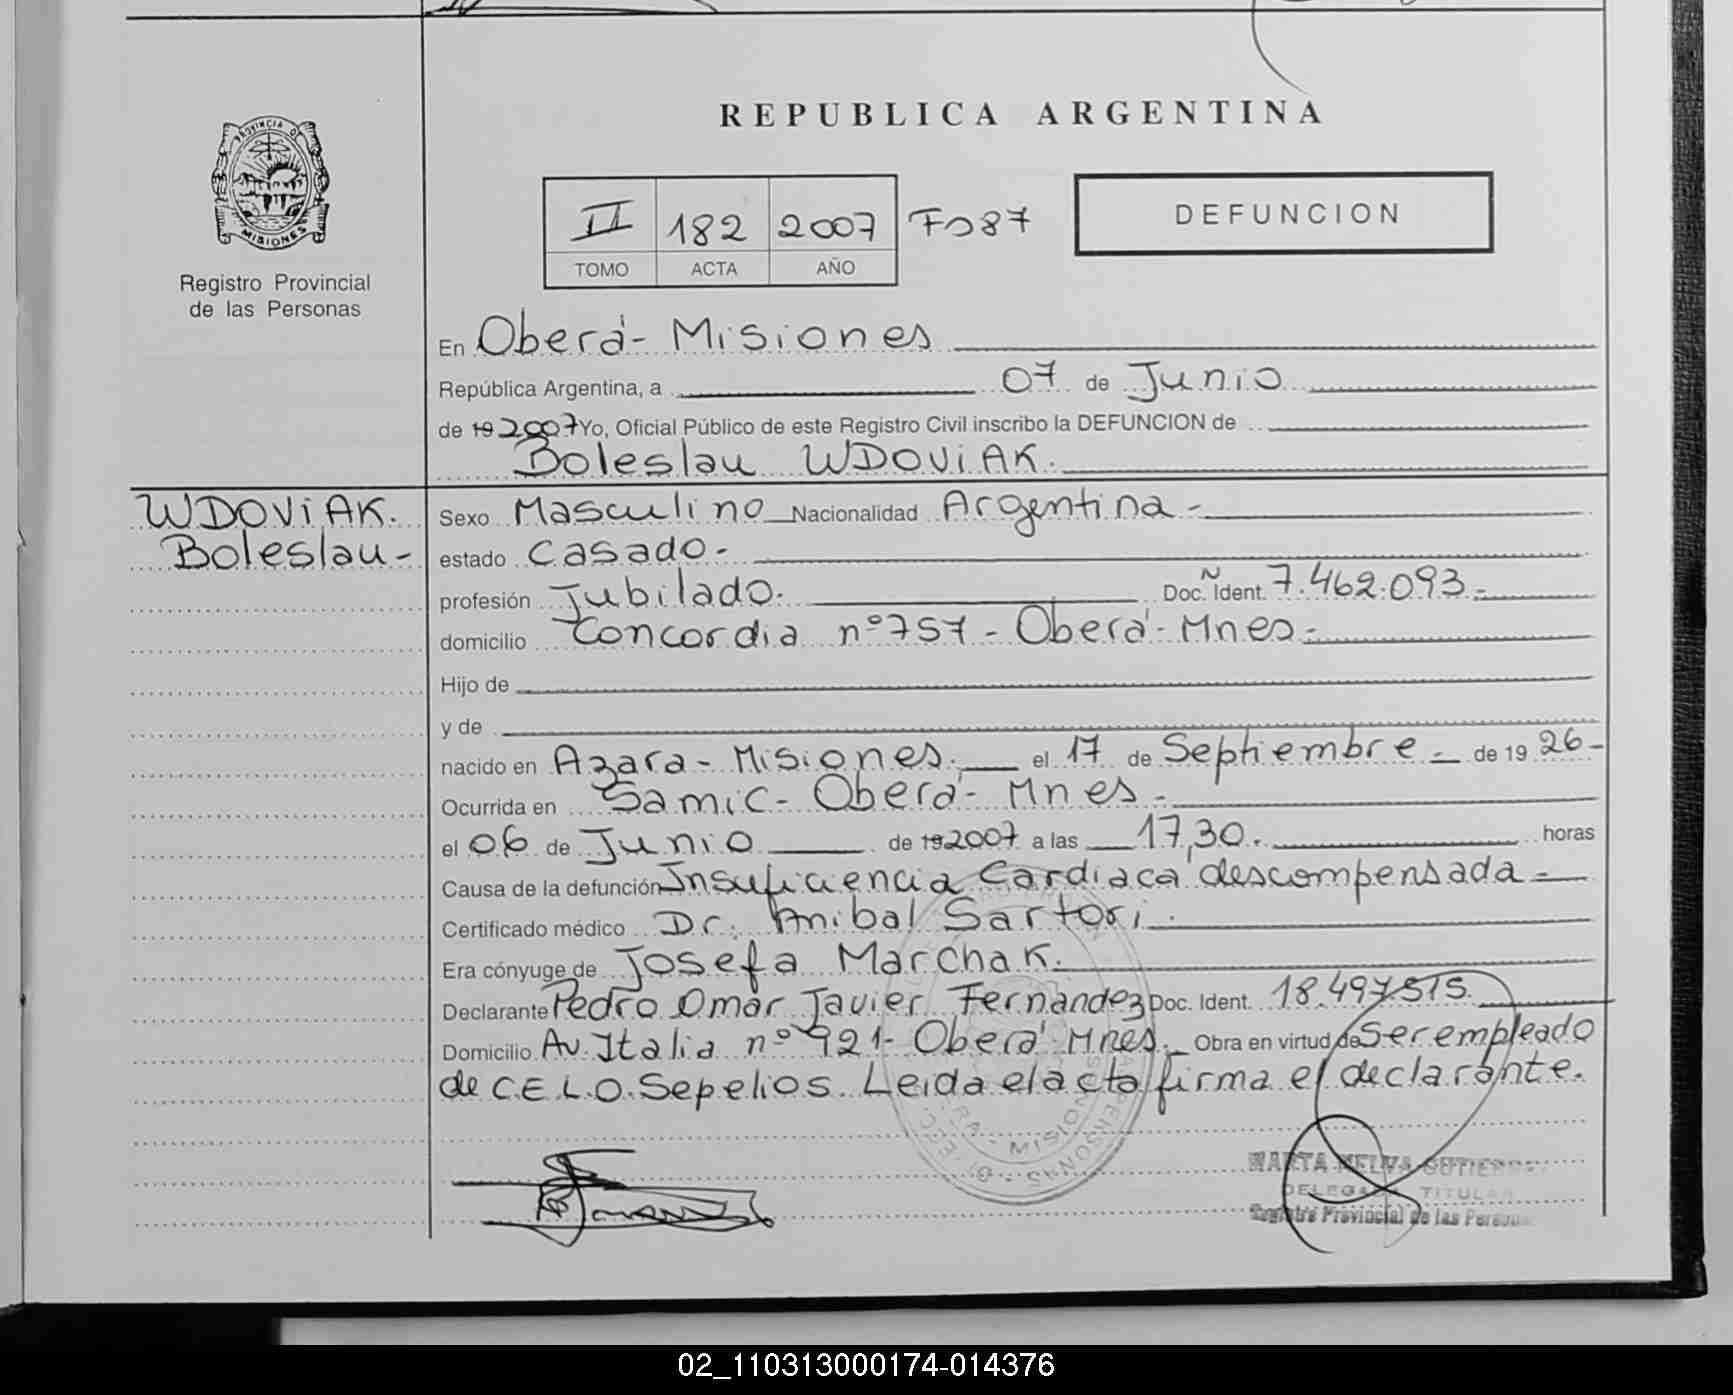 REPUBLICA ARGENTINA
PROVINCIA DE
MISIONES
Registro Provincial
de las Personas
II 182 2007 Fº 87
TOMO ACTA AÑO
DEFUNCION
En Oberá - Misiones
República Argentina, a 07 de Junio
de 19 2007 Yo, Oficial Público de este Registro Civil inscribo la DEFUNCION de
Boleslau WDOViAK.
WDOViAK.
Boleslau -
Sexo Masculino Nacionalidad Argentina -
estado Casado -
profesión Jubilado. Doc. Nº Ident. 7.462.093 -
domicilio Concordia nº 757 - Oberá - Mnes -
Hijo de
y de
nacido en Azara - Misiones. el 17 de Septiembre - de 19 26 -
Ocurrida en Samic - Oberá - Mnes -
el 06 de Junio de 19 2007 a las 17,30. horas
Causa de la defunción Insuficiencia Cardiaca descompensada -
Certificado médico Dr. Anibal Sartori.
Era cónyuge de Josefa Marchak.
Declarante Pedro Omar Javier Fernandez Doc. Ident. 18.497.515.
Domicilio Av. Italia nº 921 - Oberá - Mnes. Obra en virtud de Ser empleado
de C.E.L.O. Sepelios. Leida el acta firma el declarante.
MISIONES
PERSONAS
MARTA MELVA GUTIERREZ
DELEGADA TITULAR
Registro Provincial de las Personas
02_110313000174-014376